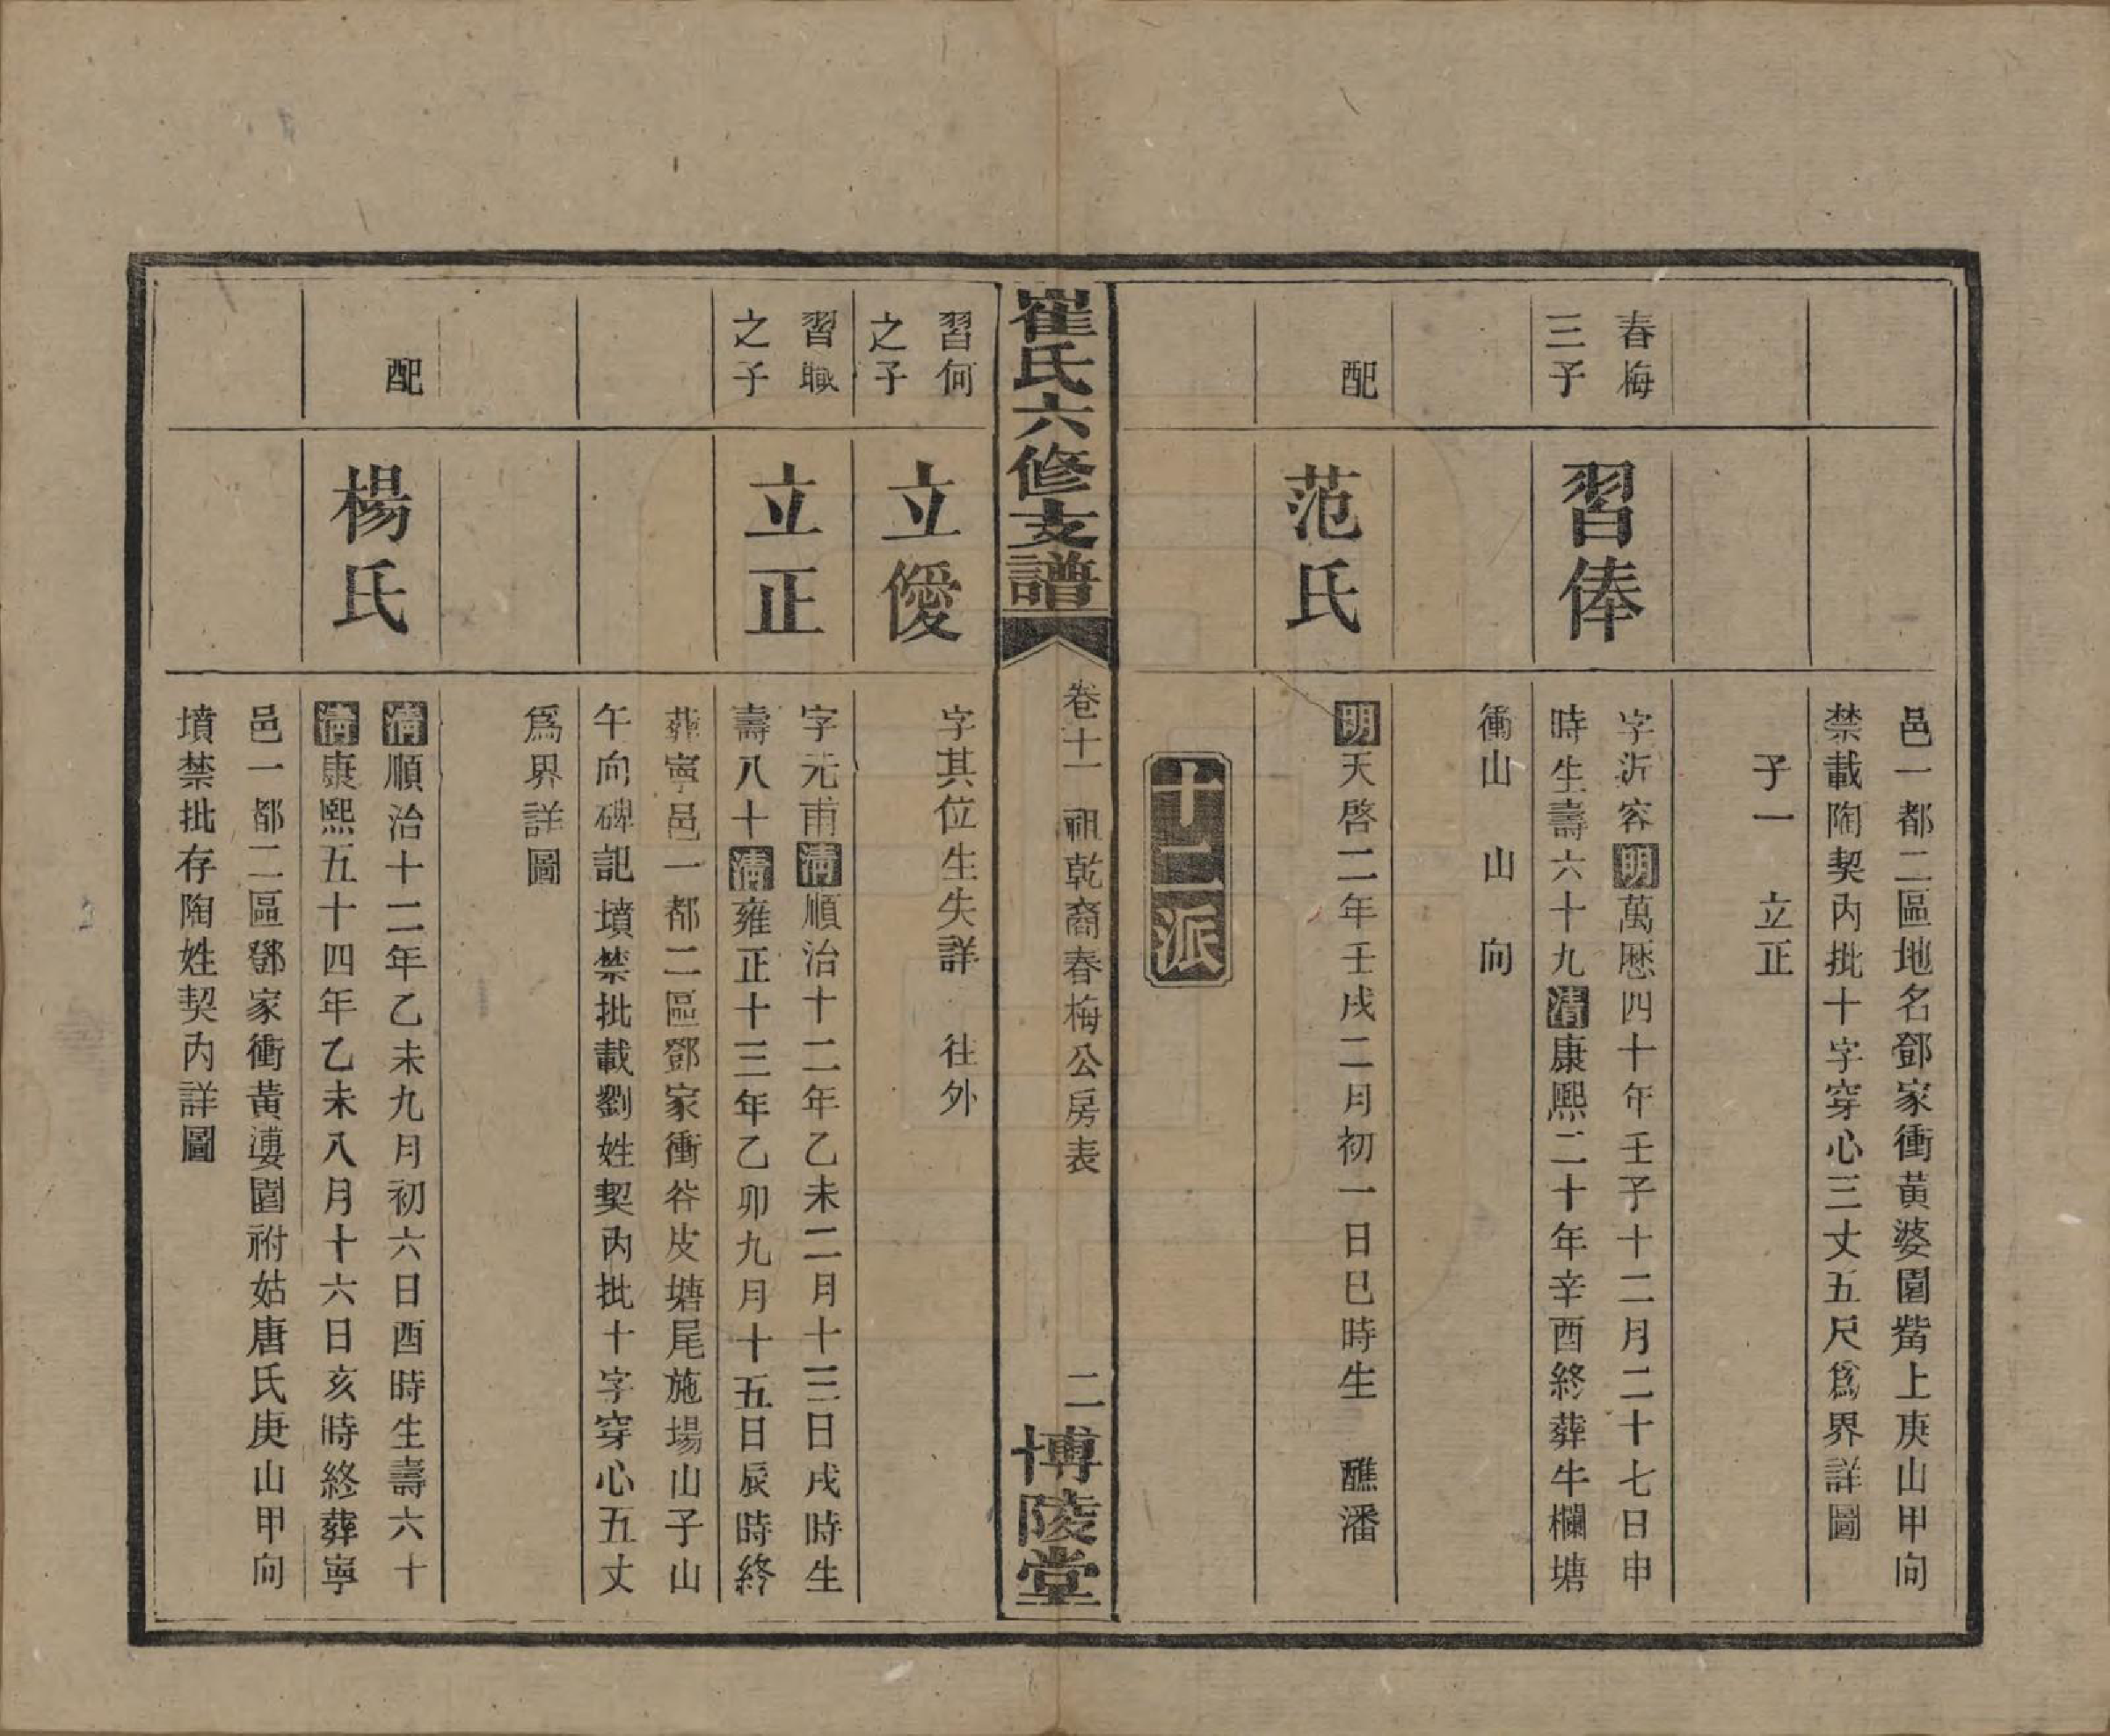 邑一都二區地名鄧家衝黃婆園觜上庚山甲向
禁載陶契內批十字穿心三丈五尺爲界詳圖
子一　立正
春梅
三子
習俸
字沂容明萬厯四十年壬子十二月二十七日申
時生壽六十九清康熙二十年辛酉終葬牛欄塘
衝山　山　向
配
范氏
明天啓二年壬戌二月初一日巳時生　醮潘
十二派
崔氏六修支譜
卷十一　祖乾裔春梅公房表
二
博陵堂
習何
之子
立優
字其位生失詳　往外
習職
之子
立正
字元甫清順治十二年乙未二月十三日戌時生
壽八十清雍正十三年乙卯九月十五日辰時終
葬寧邑一都二區鄧家衝谷皮塘尾施場山子山
午向碑記墳禁批載劉姓契內批十字穿心五丈
爲界詳圖
配
楊氏
清順治十二年乙未九月初六日酉時生壽六十
清康熙五十四年乙未八月十六日亥時終葬寧
邑一都二區鄧家衝黃漊園祔姑唐氏庚山甲向
墳禁批存陶姓契內詳圖